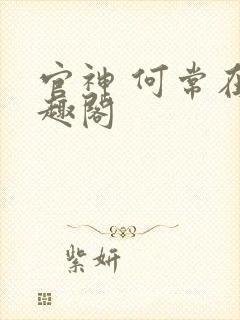 官神 何常在
趣阁
紫妍